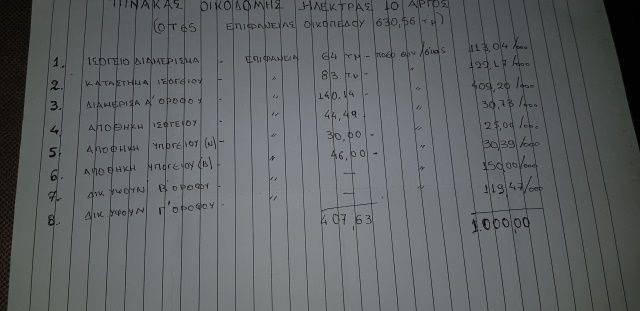 ΠΙΝΑΚΑΣ ΟΙΚΟΔΟΜΗΣ ΗΛΕΚΤΡΑΣ 10 ΑΡΓΟΣ
(ΟΤ65 ΕΠΙΦΑΝΕΙΑΣ ΟΙΚΟΠΕΔΟΥ 630,56 τμ)
1. ΙΣΟΓΕΙΟ ΔΙΑΜΕΡΙΣΜΑ - ΕΠΙΦΑΝΕΙΑ 64 τμ - 113,04/000
2. ΚΑΤΑΣΤΗΜΑ ΙΣΟΓΕΙΟΥ - " 83. τμ - " 122,17/000
3. ΔΙΑΜΕΡΙΣΑ Α' ΟΡΟΦΟΥ - " 140,14 - " 409,20/000
4. ΑΠΟΘΗΚΗ ΙΣΟΓΕΙΟΥ - " 44,49 - " 30,73/000
5. ΑΠΟΘΗΚΗ ΥΠΟΓΕΙΟΥ (Ν) - " 30,00 - " 25,00/000
6. ΑΠΟΘΗΚΗ ΥΠΟΓΕΙΟΥ (Β) - " 46,00 - " 30,39/000
7. ΔΙΚ ΥΨΟΥΝ Β' ΟΡΟΦΟΥ - " — " 150,00/000
8. ΔΙΚ ΥΨΟΥΝ Γ' ΟΡΟΦΟΥ - " — " 119,47/000
407,63 1.000,00